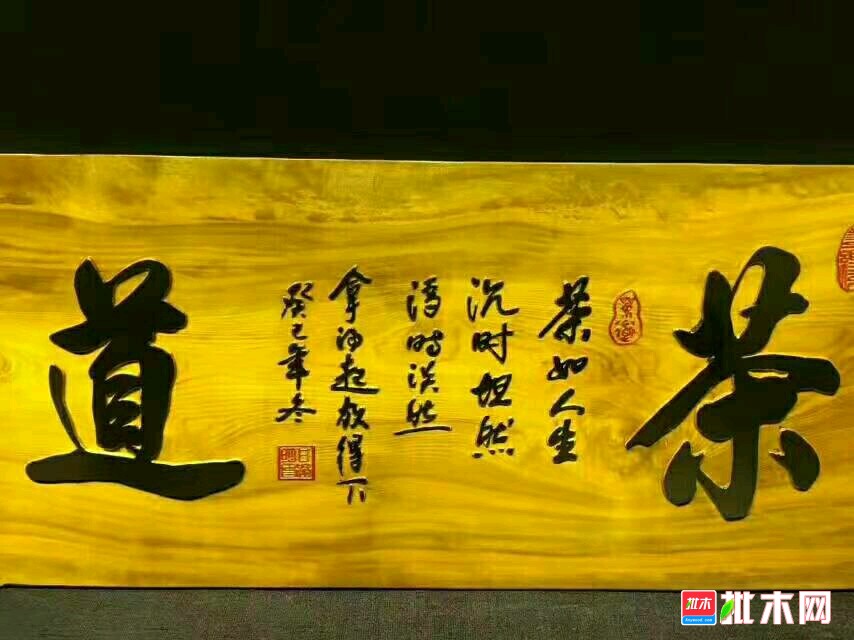 茶
茶如人生
沉时坦然
浮时淡然
拿得起放得下
癸巳年冬
道
批木网